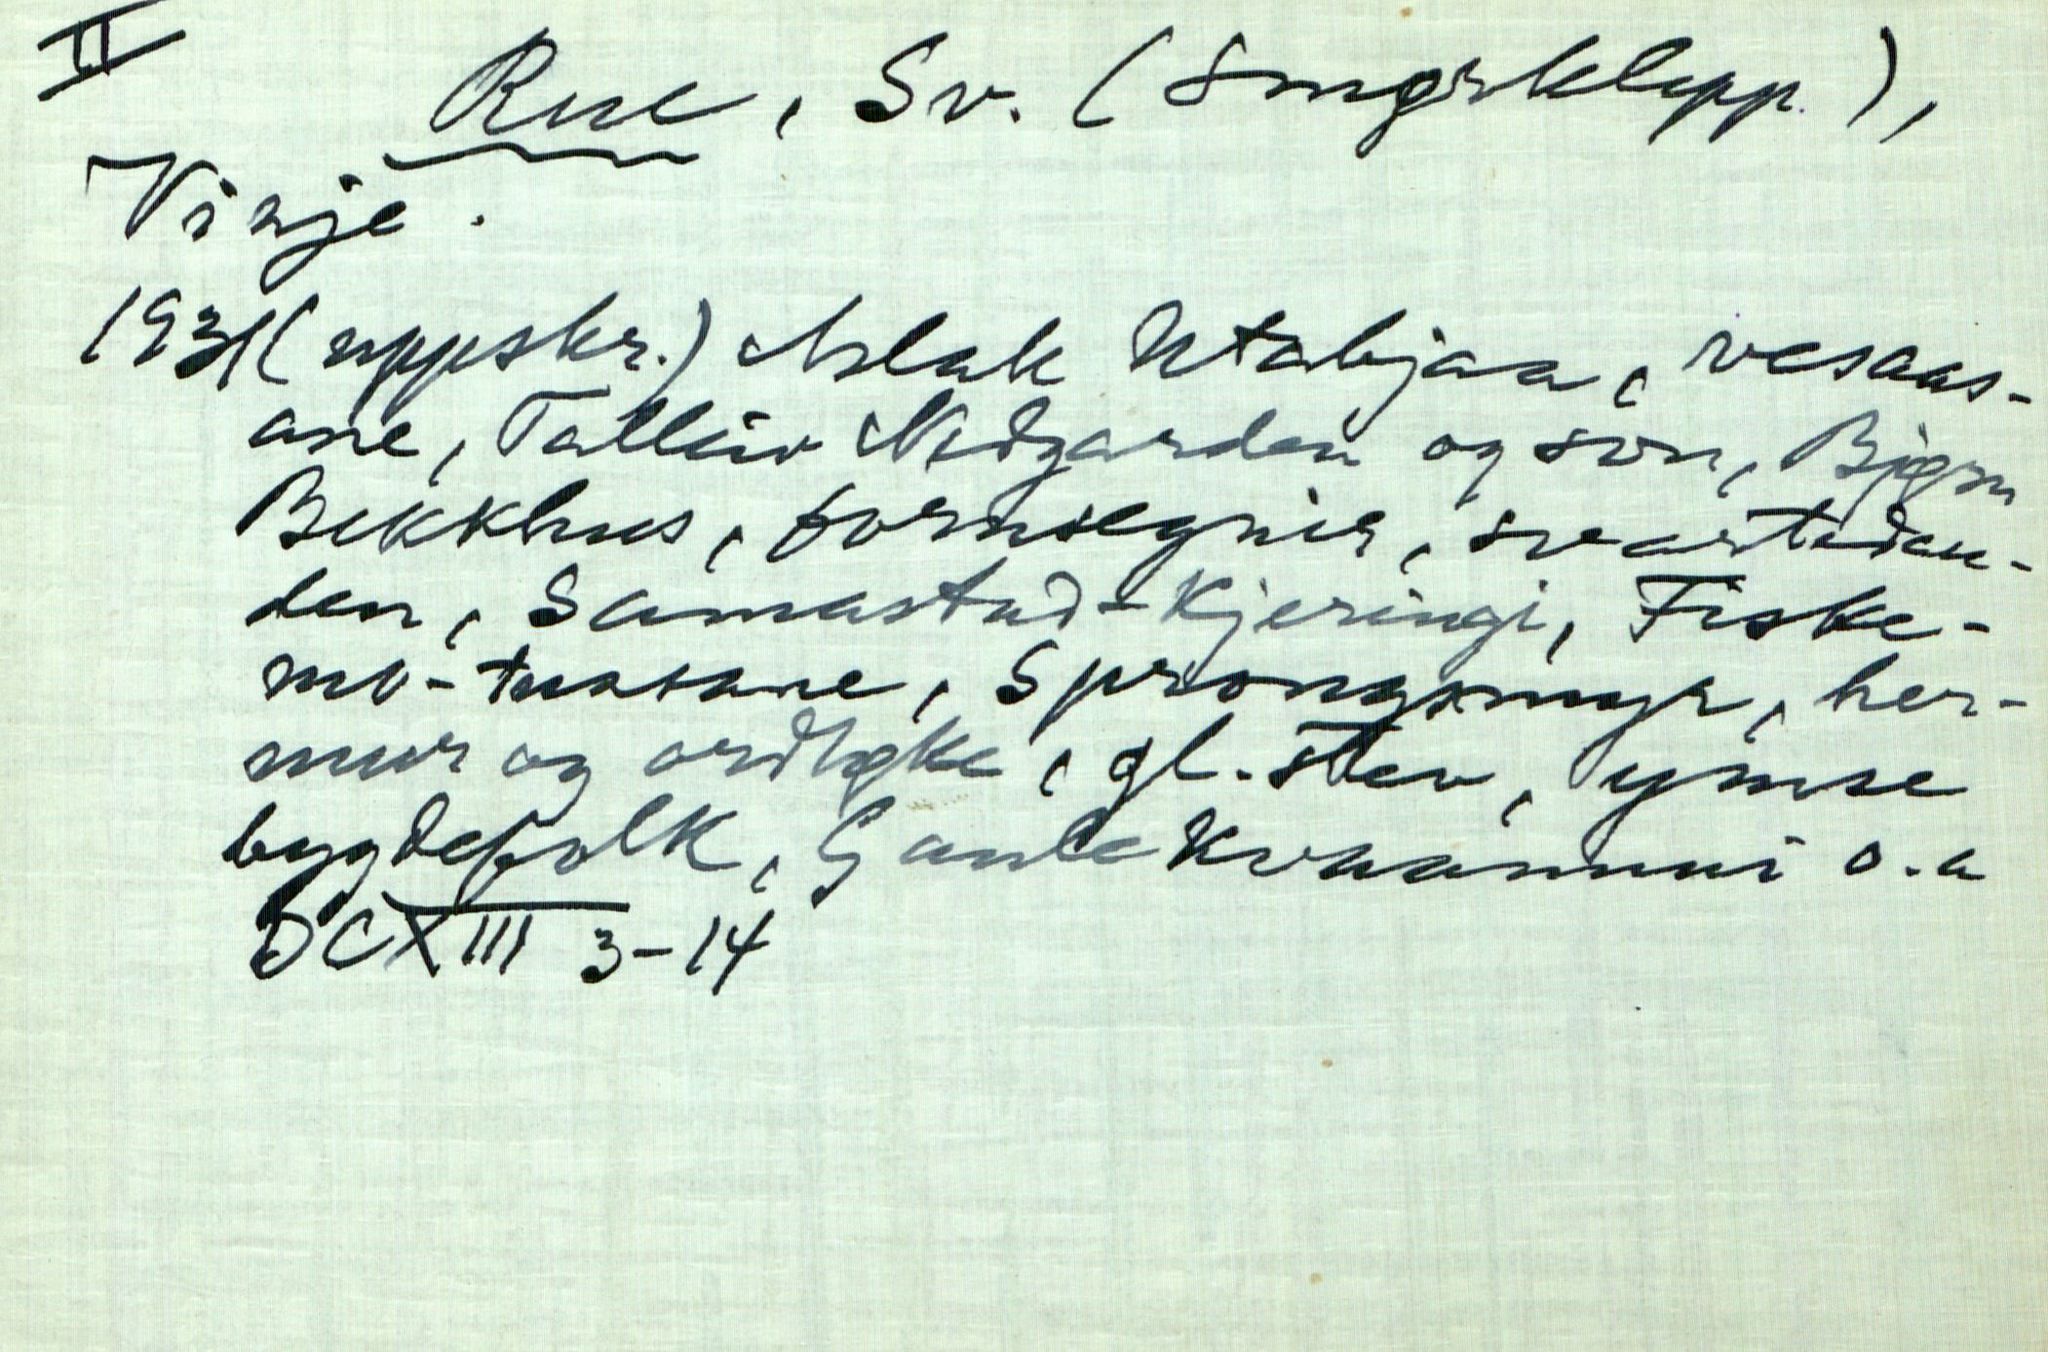 II
Rue, Sv. (Smørklepp.),
Vinje.
1931 (uppskr.) Aslak Utabjaa, vesaas-
ane, Talleiv Nedgarden og son, Bjørn
Bekkhus, fornsegner, svartedau-
den, Samastad-Kjeringi, Fiske-
mo-tussane, Sprongsmyr, her-
mur og ordtøke, gl. stev, ymse
bygdefolk, Gaule Kvaammi o.a
DCXIII 3-14